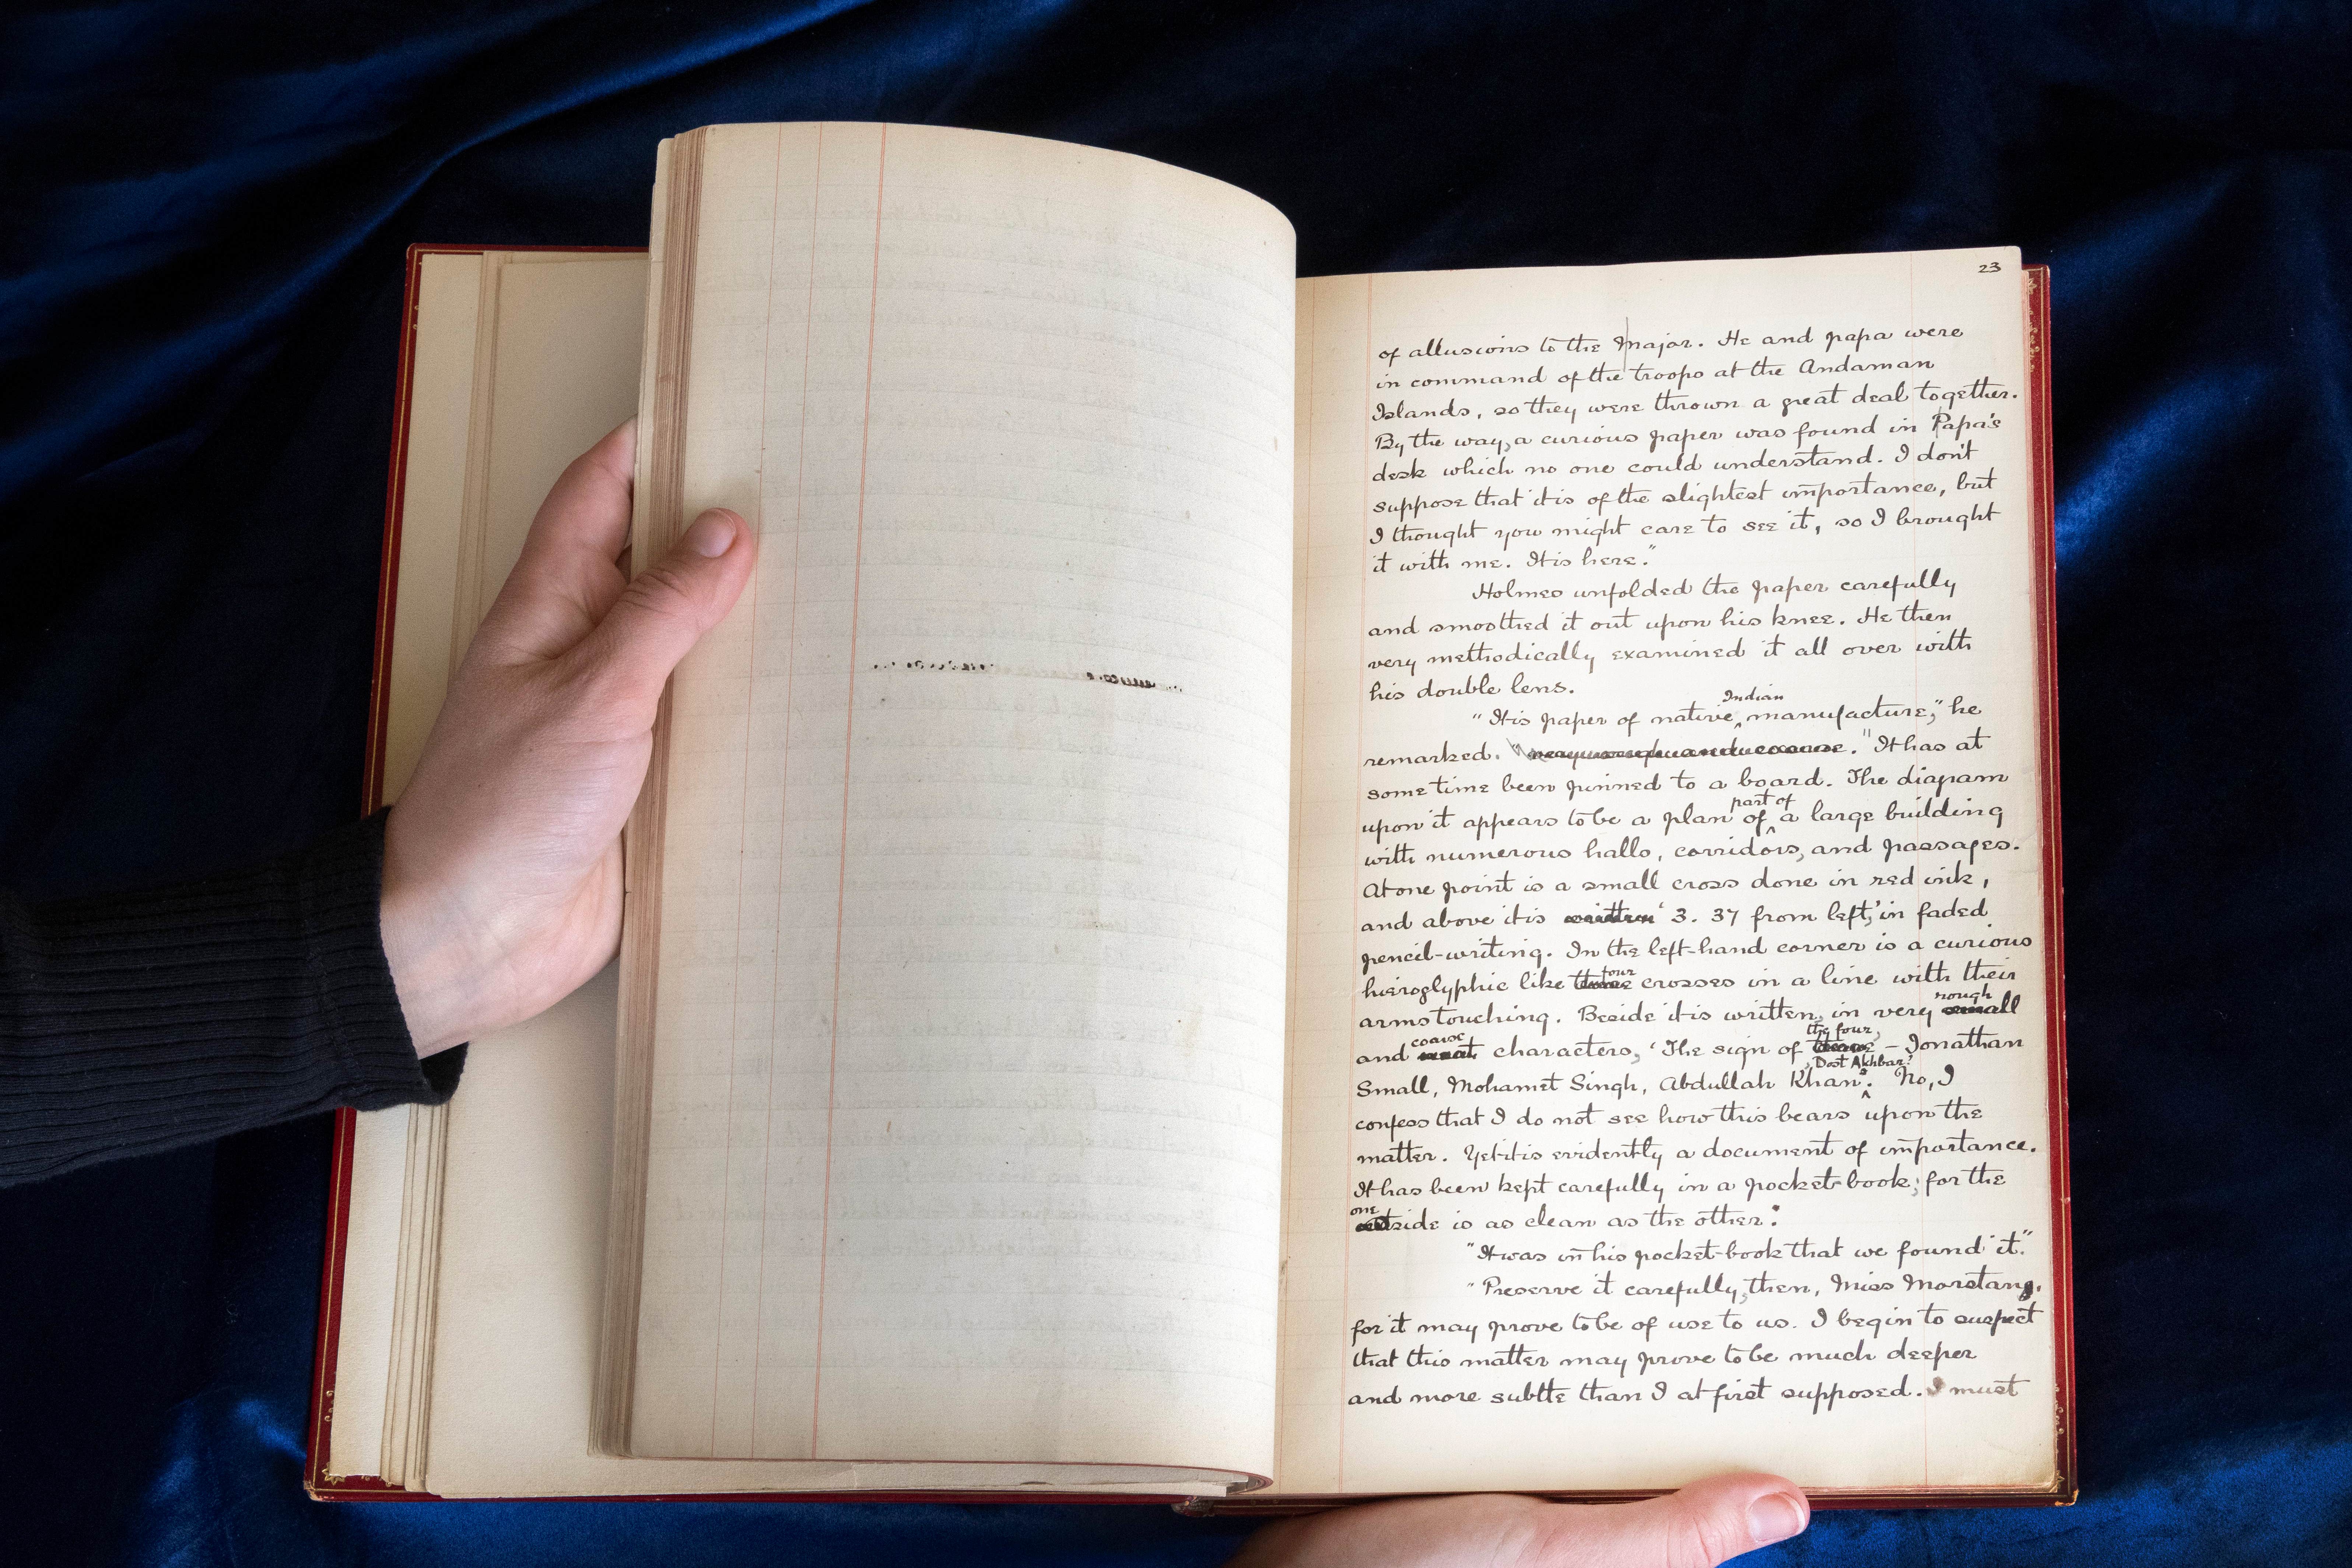 23
of allusions to the Major. He and papa were
in command of the troops at the Andaman
Islands, so they were thrown a great deal together.
By the way, a curious paper was found in Papa's
desk which no one could understand. I don't
suppose that it is of the slightest importance, but
I thought you might care to see it, so I brought
it with me. It is here."
Holmes unfolded the paper carefully
and smoothed it out upon his knee. He then
very methodically examined it all over with
his double lens.
"It is paper of native Indian manufacture," he
remarked. "It has at
some time been pinned to a board. The diagram
upon it appears to be a plan of part of a large building
with numerous halls, corridors, and passages.
At one point is a small cross done in red ink,
and above it is written '3. 37 from left,' in faded
pencil-writing. In the left-hand corner is a curious
hieroglyphic like three four crosses in a line with their
arms touching. Beside it is written, in very small rough
and neat coarse characters, 'The sign of three the four, – Jonathan
Small, Mohamet Singh, Abdullah Khan, Dost Akhbar.' No, I
confess that I do not see how this bears upon the
matter. Yet it is evidently a document of importance.
It has been kept carefully in a pocket-book; for the
one side is as clean as the other."
"It was in his pocket-book that we found it."
"Preserve it carefully, then, Miss Morstan,
for it may prove to be of use to us. I begin to suspect
that this matter may prove to be much deeper
and more subtle than I at first supposed. I must